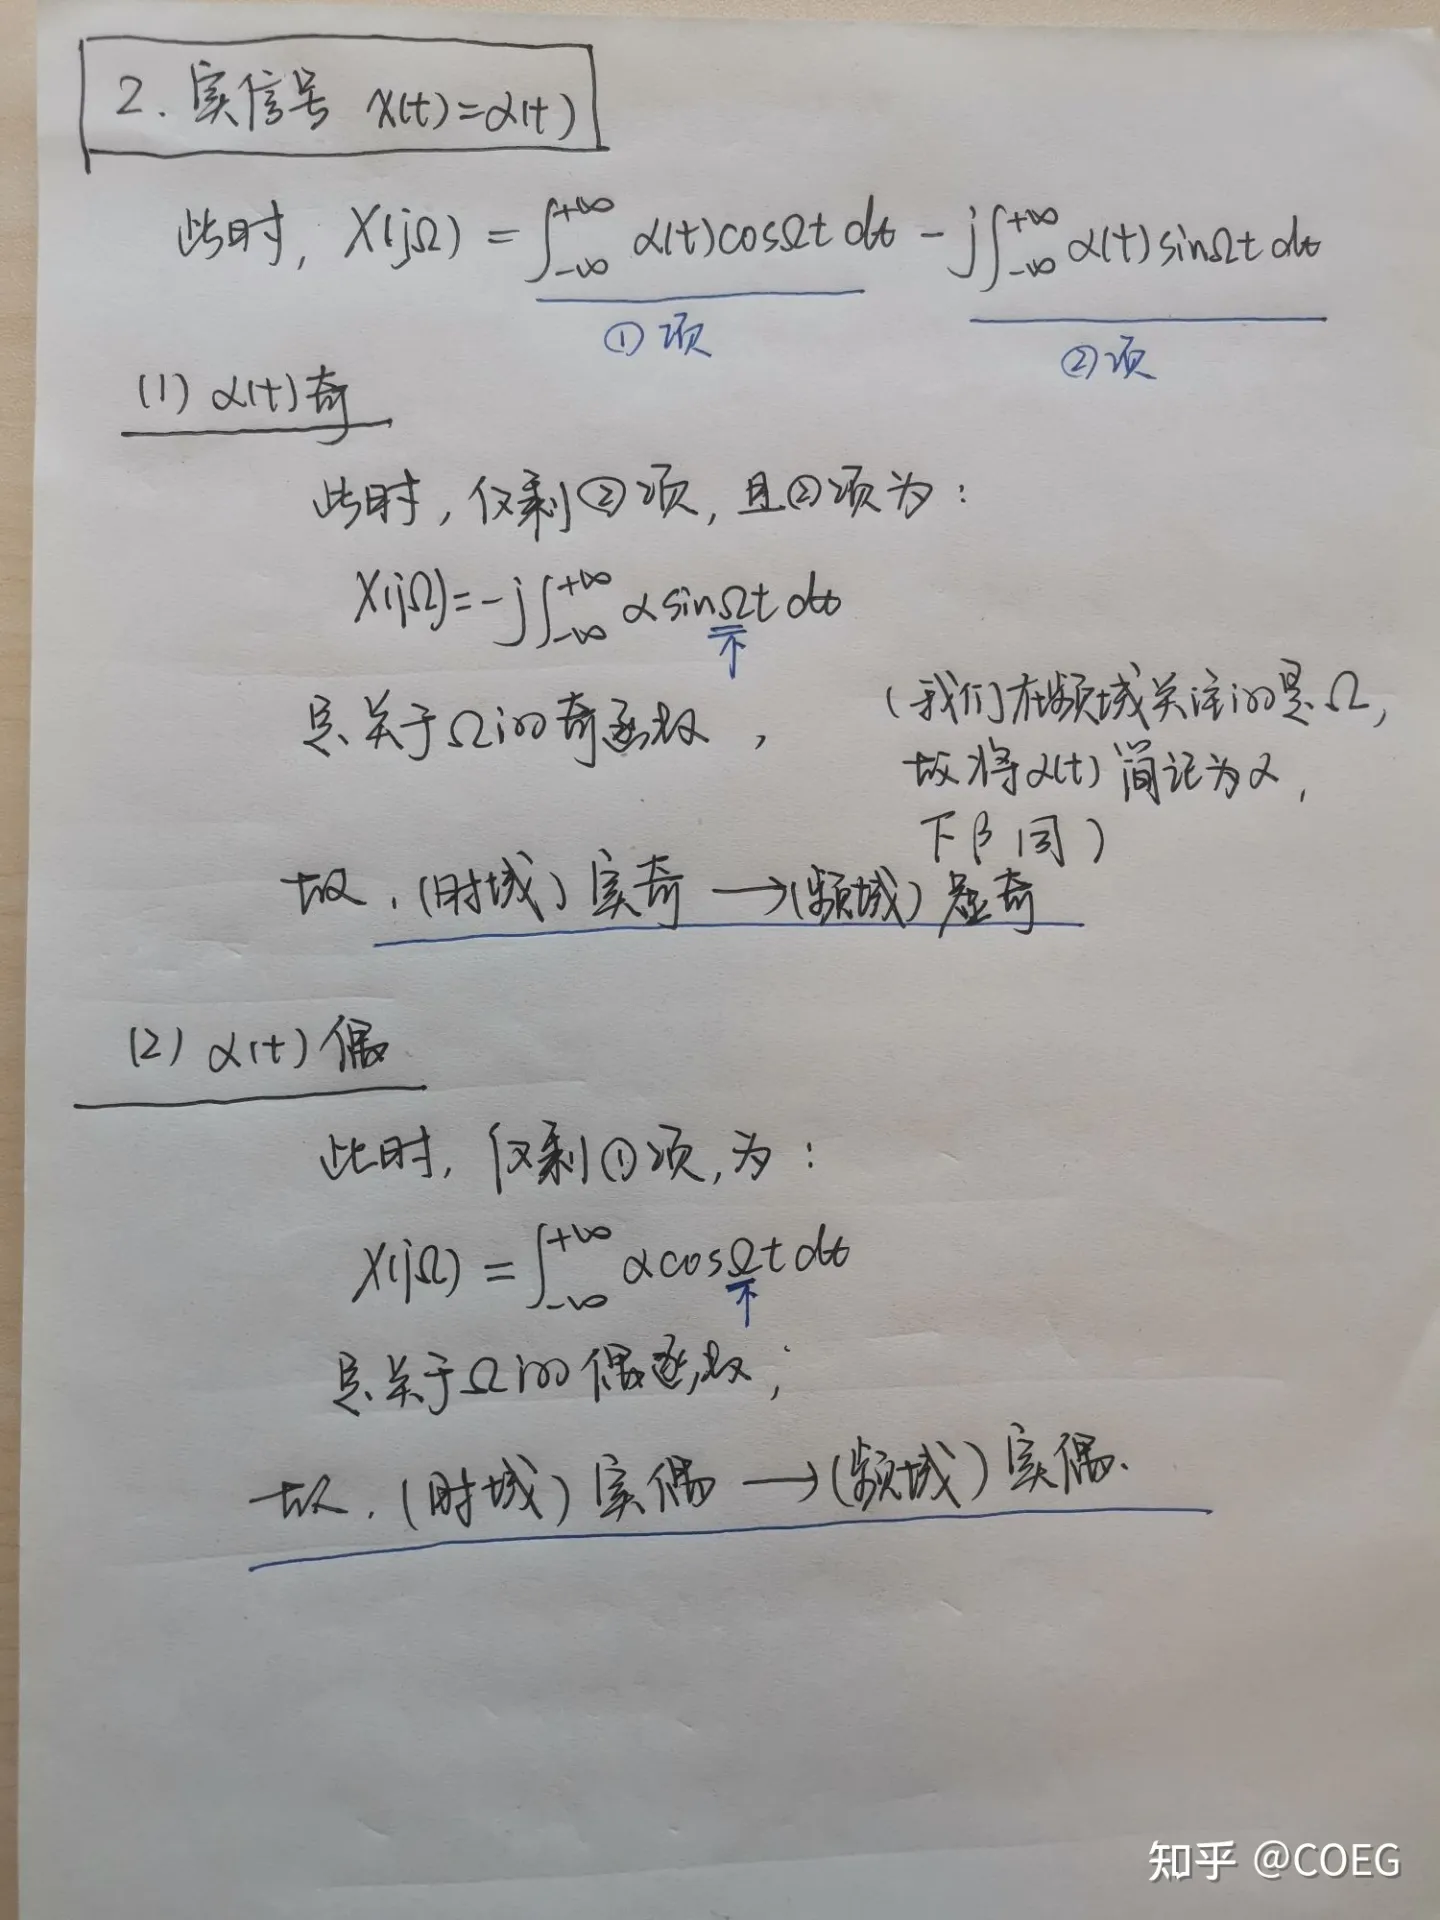 2. 实信号 x(t)=α(t)
此时, X(jΩ) = ∫_{-∞}^{+∞} α(t)cosΩt dt - j∫_{-∞}^{+∞} α(t)sinΩt dt
①项
②项
(1) α(t)奇
此时, 仅剩②项, 且②项为:
X(jΩ)=-j∫_{-∞}^{+∞} α sinΩt dt
是关于Ω的奇函数,
(我们在频域关注的是Ω,
故将α(t)简记为α,
下β同)
故, (时域) 实奇 → (频域) 虚奇
(2) α(t) 偶
此时, 仅剩①项, 为:
X(jΩ) = ∫_{-∞}^{+∞} α cosΩt dt
是关于Ω的偶函数;
故, (时域) 实偶 → (频域) 实偶.
知乎 @COEG